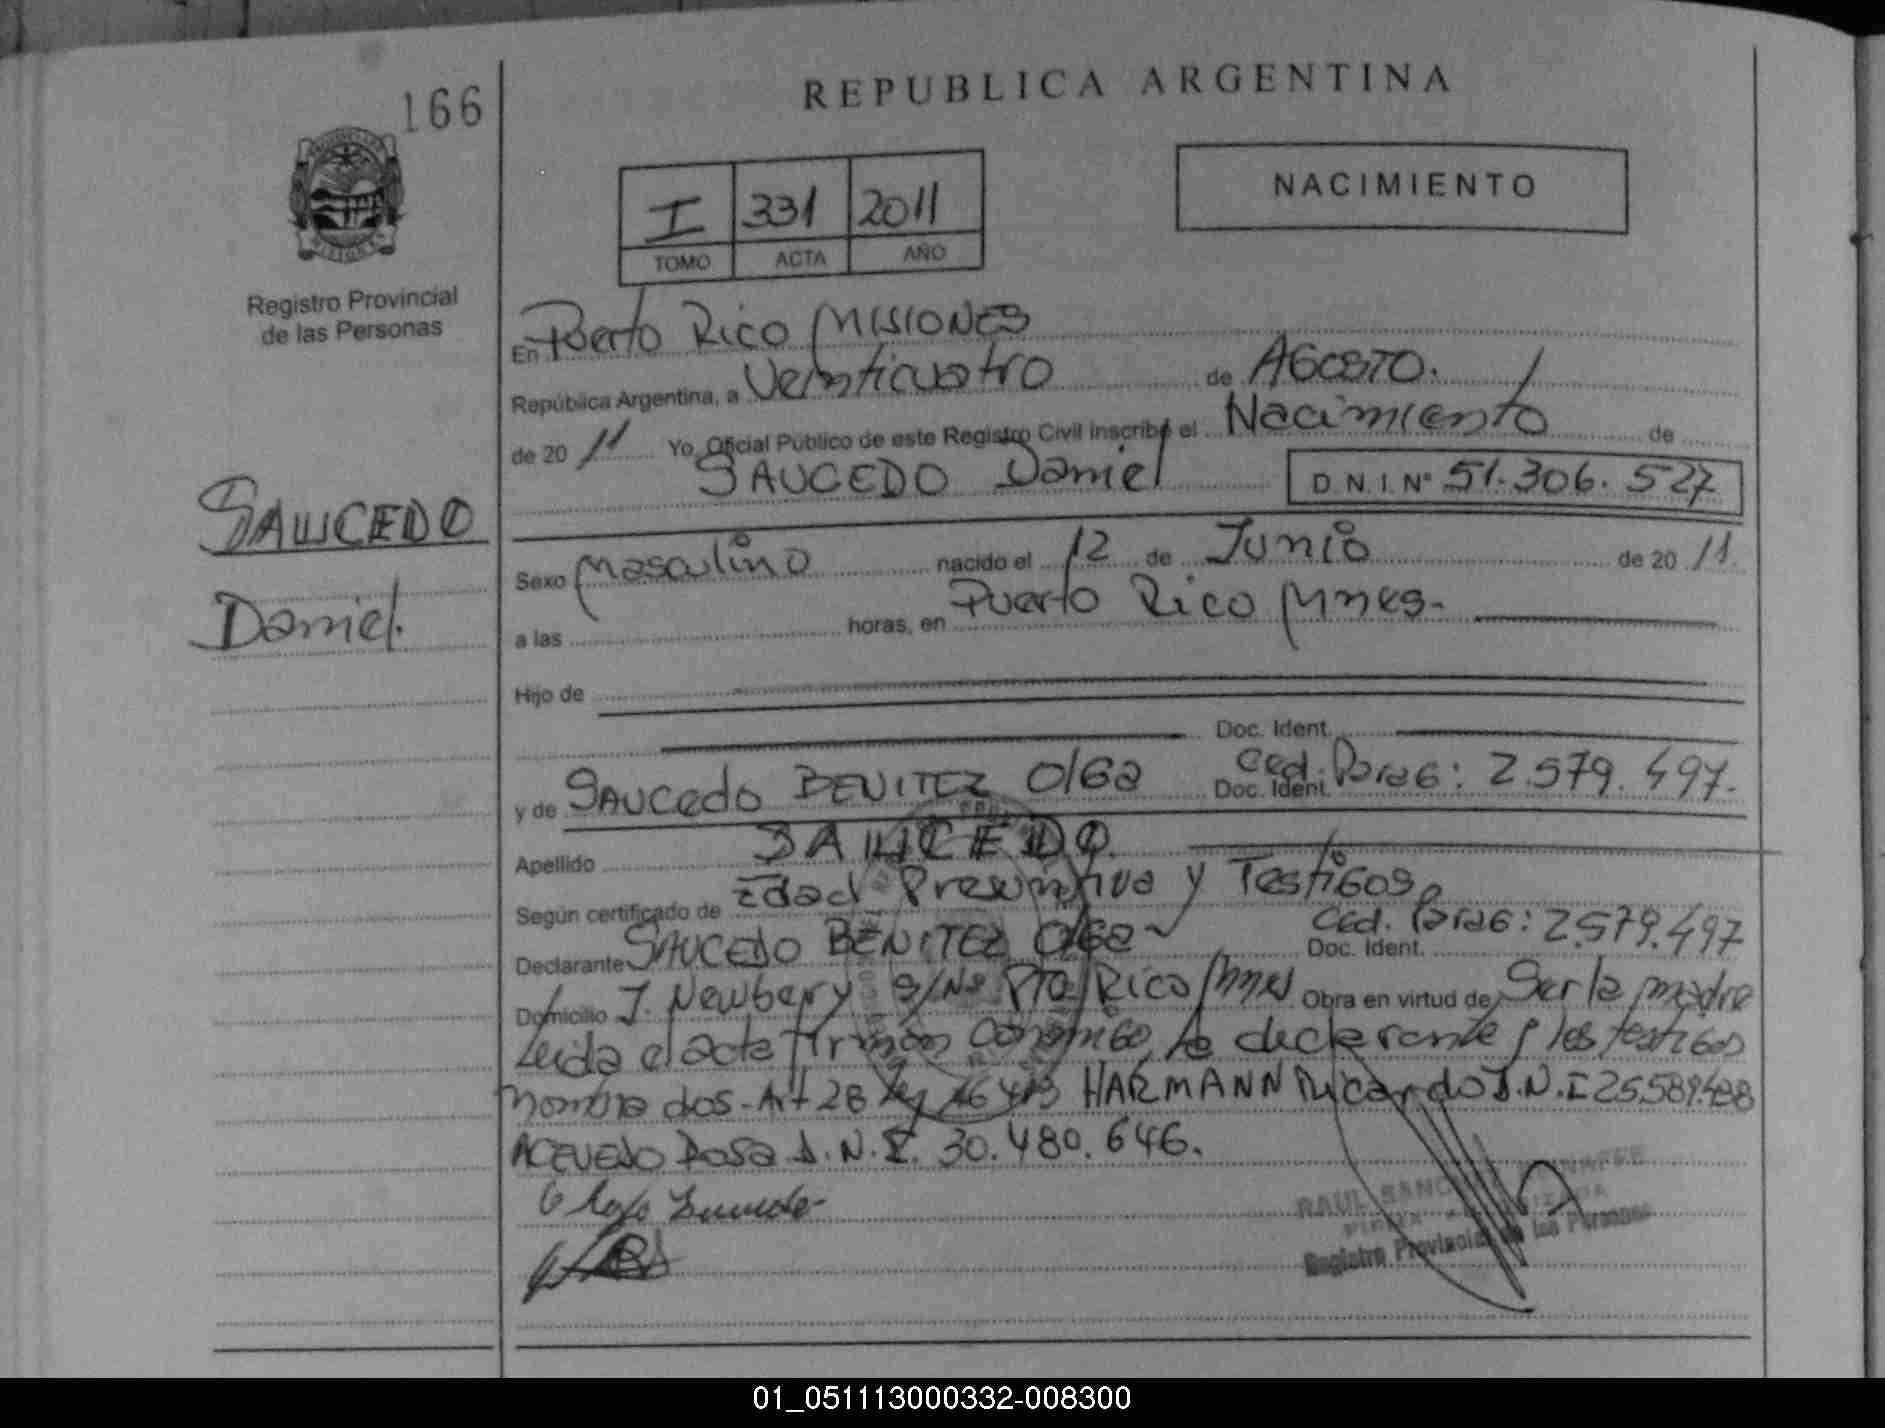 166
REPUBLICA ARGENTINA
I 331 2011
TOMO ACTA AÑO
NACIMIENTO
Registro Provincial
de las Personas
SAUCEDO
Daniel.
En Puerto Rico MISIONES
República Argentina, a Veinticuatro de AGOSTO.
de 20 11 Yo, Oficial Público de este Registro Civil inscribo el Nacimiento de
SAUCEDO Daniel D.N.I. Nº 51.306.527
Sexo Masculino nacido el 12 de Junio de 20 11.
a las horas, en Puerto Rico Mnes.
Hijo de
Doc. Ident.
y de SAUCEDO BENITEZ Olga Doc. Ident. Ced. Parag: 2.579.497.
Apellido SAUCEDO
Según certificado de Edad Presuntiva y Testigos
Declarante SAUCEDO BENITEZ Olga Doc. Ident. Ced. Parag: 2.579.497
Domicilio J. Newbery s/Nº Pto Rico Mnes Obra en virtud de Ser la madre
Leida el acta firman conmigo, la declarante y los testigos
Nombrados - Art 28 Ley 26413 HARMANN Ricardo D.N.I 25.589.498
ACEVEDO Rosa D.N.I. 30.480.646.
RAUL
Registro Provincial de las Personas
01_051113000332-008300